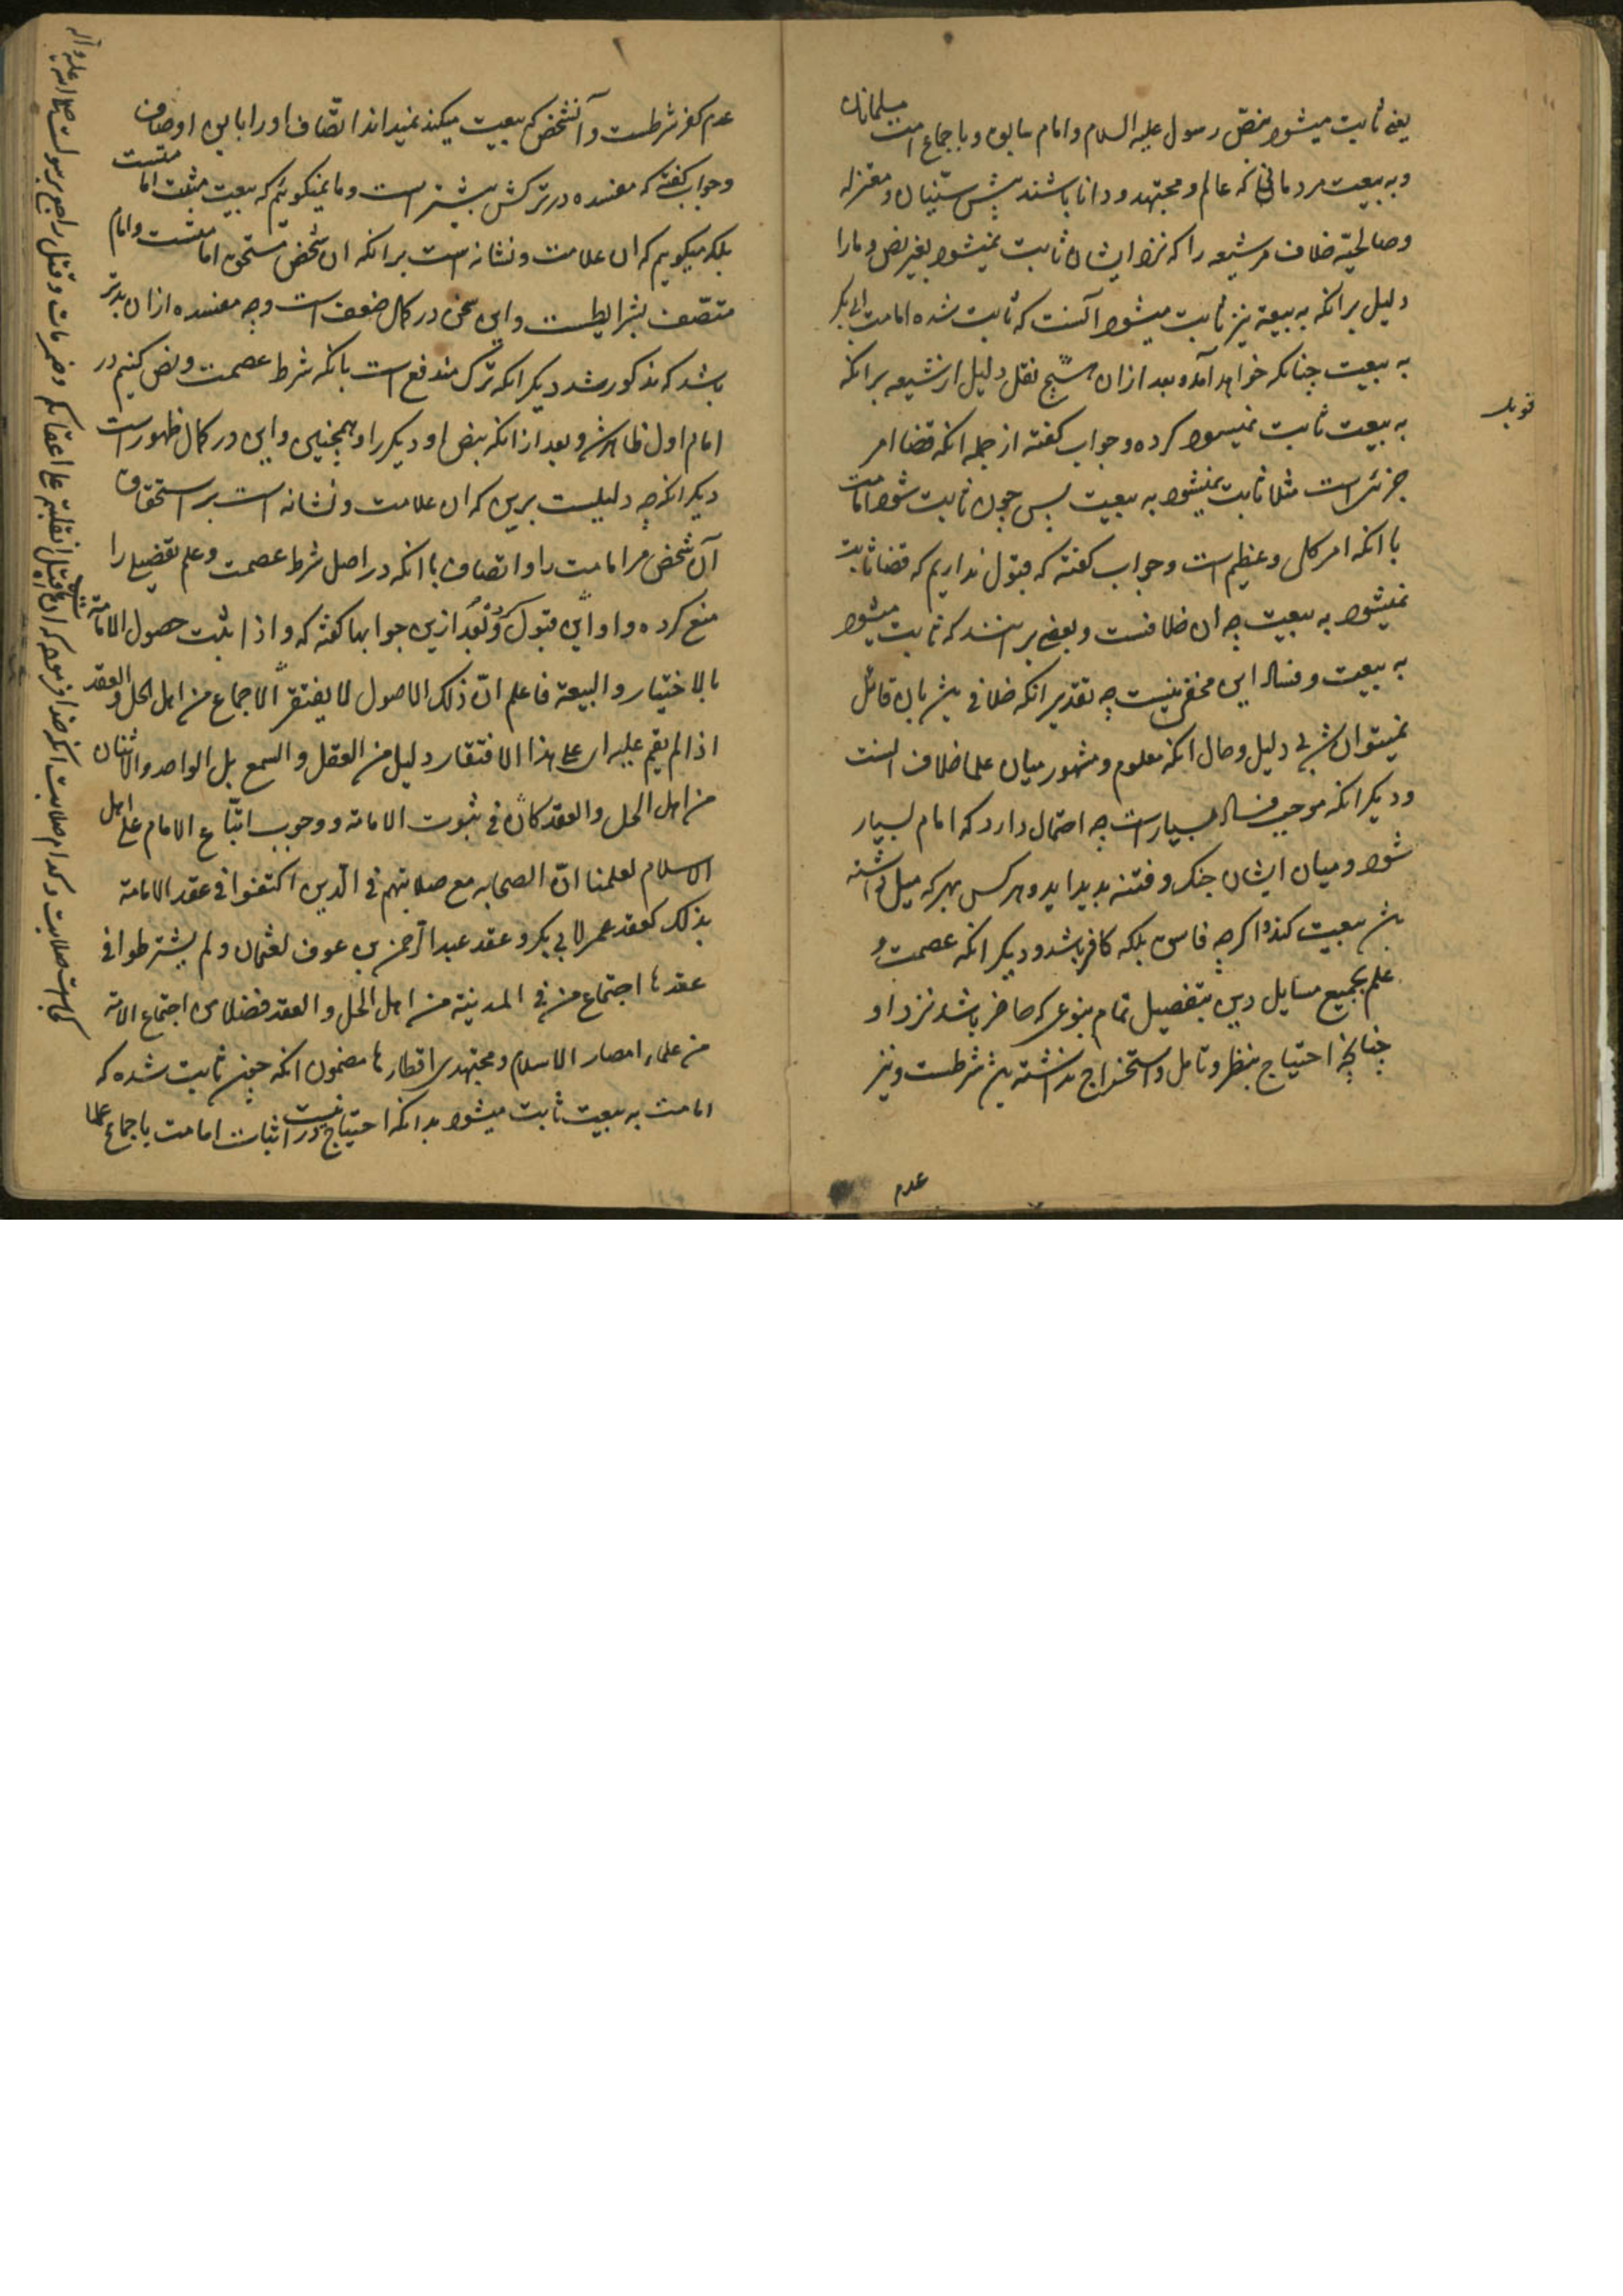 یعنی ثابت میشود بنص رسول علیه السلام و امام سابق و باجماع امت مسلمانان
و به بیعت مردمانی که عالم و مجتهد و دانا باشند پیش سنّیان و معتزله
و صالحیّه خلاف مر شیعه را که نزد ایشان ثابت نمیشود بغیر نص و ما را
دلیل بر انکه به بیعة نیز ثابت میشود آنست که ثابت شده امامت ابی بکر
به بیعت چنانکه خواهد آمد و بعد ازان شیخ نقل دلیل از شیعه بر انکه
به بیعت ثابت نمیشود کرده و جواب کفته از جمله انکه قضا امر
جزئی است مثلا ثابت نمیشود به بیعت پس چون ثابت شود امامت
با انکه امر کلی و عظیم است و جواب کفته که قبول نداریم که قضا ثابت
نمیشود به بیعت چه ان خلافست و بعضی بر انند که ثابت میشود
به بیعت و فساد این مخفی نیست چه تقدیر انکه خلافی باشد بان قائل
نمیتوان شد بی دلیل و حال انکه معلوم و مشهور میان علما خلاف انست
و دیکر انکه موجب فساد بسیار است چه احتمال دارد که امام بسیار
شود و میان ایشان جنک و فتنه پدید اید و هر کس بهر که میل داشته
باشد بیعت کند و اکرچه فاسق بلکه کافر باشد و دیکر انکه عصمت و
علم بجمیع مسایل دین بتفصیل تمام بنوعی که حاضر باشد نزد او
چنانچه احتیاج بنظر و تامل و استخراج نداشته باشد شرطست و نیز
عدم
عدم کفر شرطست و آنشخص که بیعت میکند نمیداند اتّصاف او را باین اوصاف
و جواب کفته که مفسده در ترکش بیشتر است و ما نمیکوییم که بیعت مثبت امامتست
بلکه میکوییم که ان علامت و نشانه است بر انکه ان شخص مستحق امامتست و امام
متّصف بشرایطست و این سخن در کمال ضعف است و چه مفسده ازان بدتر
باشد که مذکور شد دیکر انکه ترک مندفع است بانکه شرط عصمت و نص کنیم در
امام اول ظاهر شد و بعد از انکه بنص او دیکر را و همچنین و این در کمال ظهور است
دیکر انکه چه دلیلست برین که ان علامت و نشانه است بر استحقاق
آن شخص مر امامت را و اتصاف با انکه در اصل شرط عصمت و علم تفضیلی را
منع کرده و او این قبول و بعد ازین جوابها کفته که و اذا ثبت حصول الامامة
بالاختیار و البیعة فاعلم انّ ذلک الاصول لا یفتقر الی الاجماع من اهل الحل و العقد
اذا لم یقم علیه ای علی هذا الافتقار دلیل من العقل و السمع بل الواحد و الاثنان
من اهل الحل و العقد کاف فی ثبوت الامامة و وجوب اتّباع الامام علی اهل
الاسلام لعلمنا انّ الصحابه مع صلابتهم فی الدّین اکتفوا فی عقد الامامة
بذلک کعقد عمر لابی بکر و عقد عبد الرحمن بن عوف لعثمان و لم یشترطوا فی
عقدها اجتماع من فی المدینة من اهل الحل و العقد فضلا من اجتماع الامة
من علماء امصار الاسلام و مجتهدی اقطارها مضمون انکه چون ثابت شده که
امامت به بیعت ثابت میشود بدانکه احتیاج نیست در اثبات امامت باجماع علما